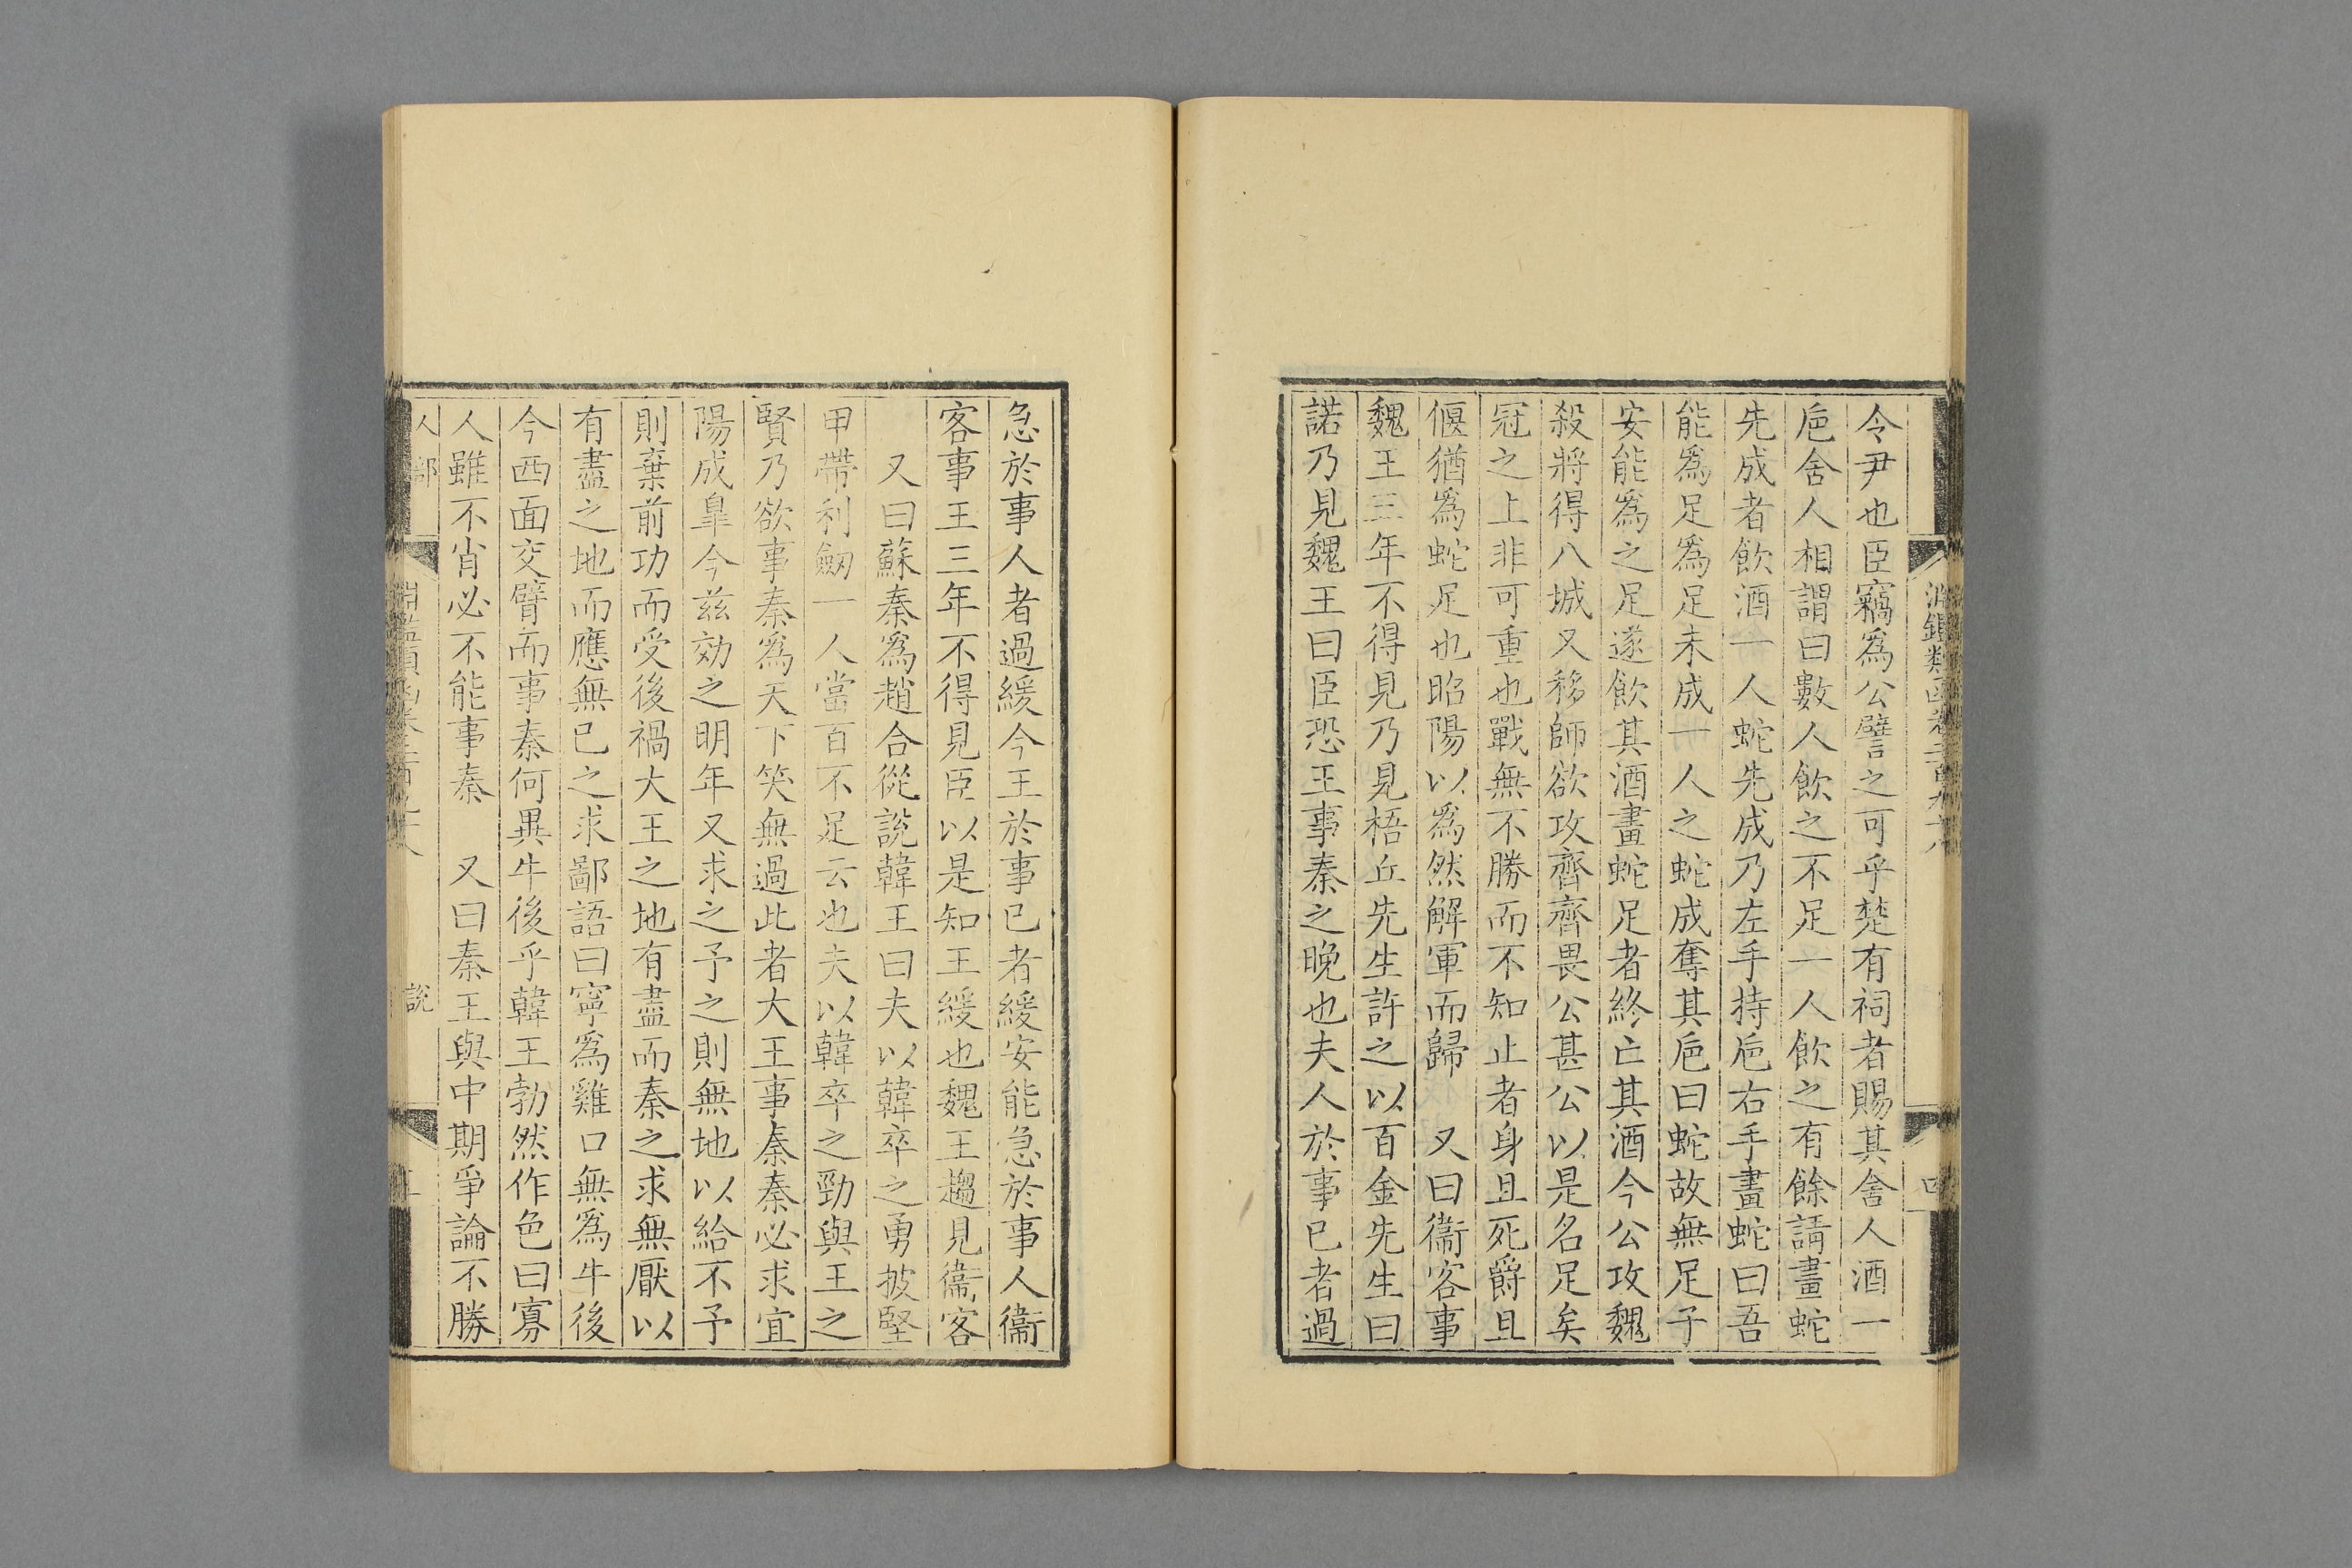 令尹也臣竊爲公譬之可乎楚有祠者賜其舍人酒一
巵舍人相謂曰數人飲之不足一人飲之有餘請畫蛇
先成者飲酒一人蛇先成乃左手持巵右手畫蛇曰吾
能爲足爲足未成一人之蛇成奪其巵曰蛇故無足子
安能爲之足遂飲其酒畫蛇足者終亡其酒今公攻魏
殺將得八城又移師欲攻齊齊畏公甚公以是名足矣
冠之上非可重也戰無不勝而不知止者身且死爵且
偃猶爲蛇足也昭陽以爲然解軍而歸　又曰衞客事
魏王三年不得見乃見梧丘先生許之以百金先生曰
諾乃見魏王曰臣恐王事秦之晚也夫人於事已者過
急於事人者過緩今王於事已者緩安能急於事人衞
客事王三年不得見臣以是知王緩也魏王趨見衞客
又曰蘇秦爲趙合從說韓王曰夫以韓卒之勇披堅
甲帶利劒一人當百不足云也夫以韓卒之勁與王之
賢乃欲事秦爲天下笑無過此者大王事秦秦必求宜
陽成臯今兹効之明年又求之予之則無地以給不予
則棄前功而受後禍大王之地有盡而秦之求無厭以
有盡之地而應無已之求鄙語曰寧爲雞口無爲牛後
今西面交臂而事秦何異牛後乎韓王勃然作色曰寡
人雖不肖必不能事秦　又曰秦王與中期爭論不勝
人部
說